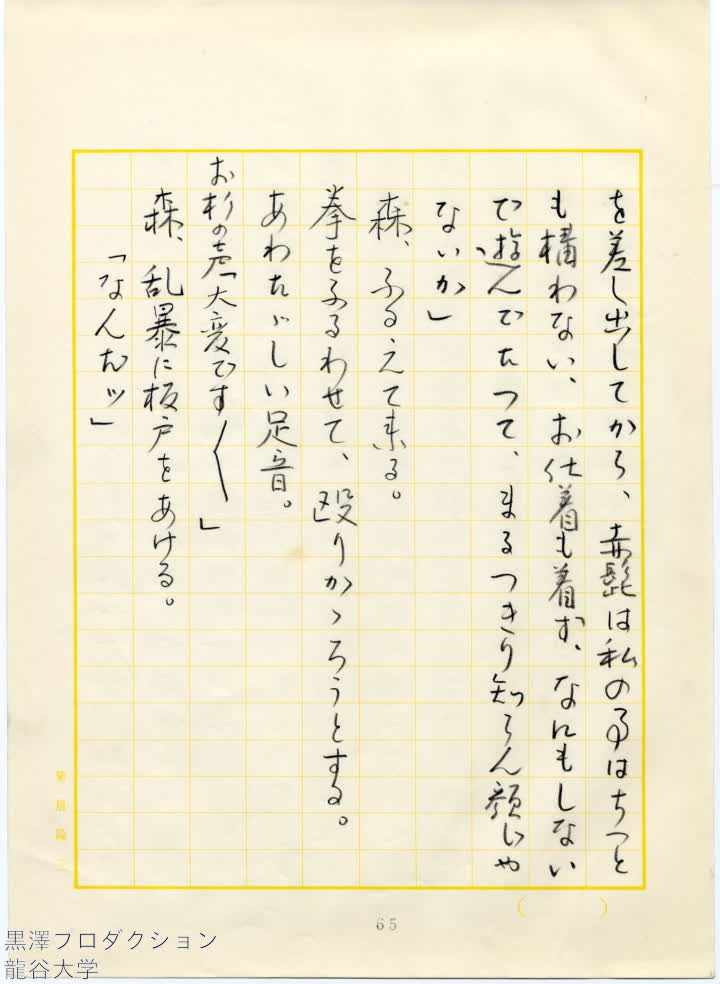 を差し出してから、赤髭は私の事はちつと
も構わない、お仕着も着ず、なにもしない
で遊んでたつて、まるつきり知らん顔じや
ないか」
森、ふるえて来る。
拳をふるわせて、殴りかゝろうとする。
あわたゞしい足音。
お杉の声「大変です〱」
森、乱暴に板戸をあける。
「なんだッ」
菊島隆三
65
黒澤プロダクション
龍谷大学